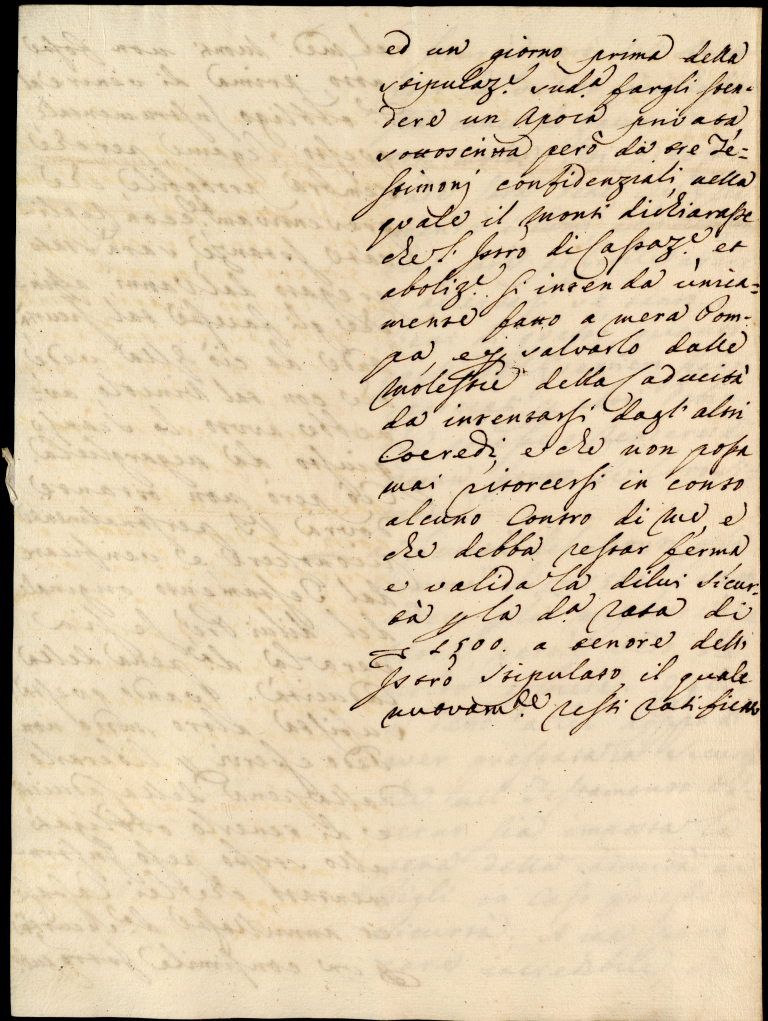 ed un giorno prima della
stipulaz.e sud.a fargli sten-
dere un Apoca privata
sottoscritta però da tre Te-
stimonj confidenziali, nella
quale il Monti dichiarasse
che l'Istro di Cassaz.e et
aboliz.e si intenda unica-
mente fatto a mera Pom-
pa, e p salvarlo dalle
molestie della Caducità
da intentarsi dagl'altri
Coeredi, e che non possa
mai ritorcersi in conto
alcuno Contro di me, e
che debba restar ferma
e valida la dilui sicur-
tà p la d.a rata di
1500. a tenore dell'
Istro stipulato, il quale
nuovam.te resti ratificato